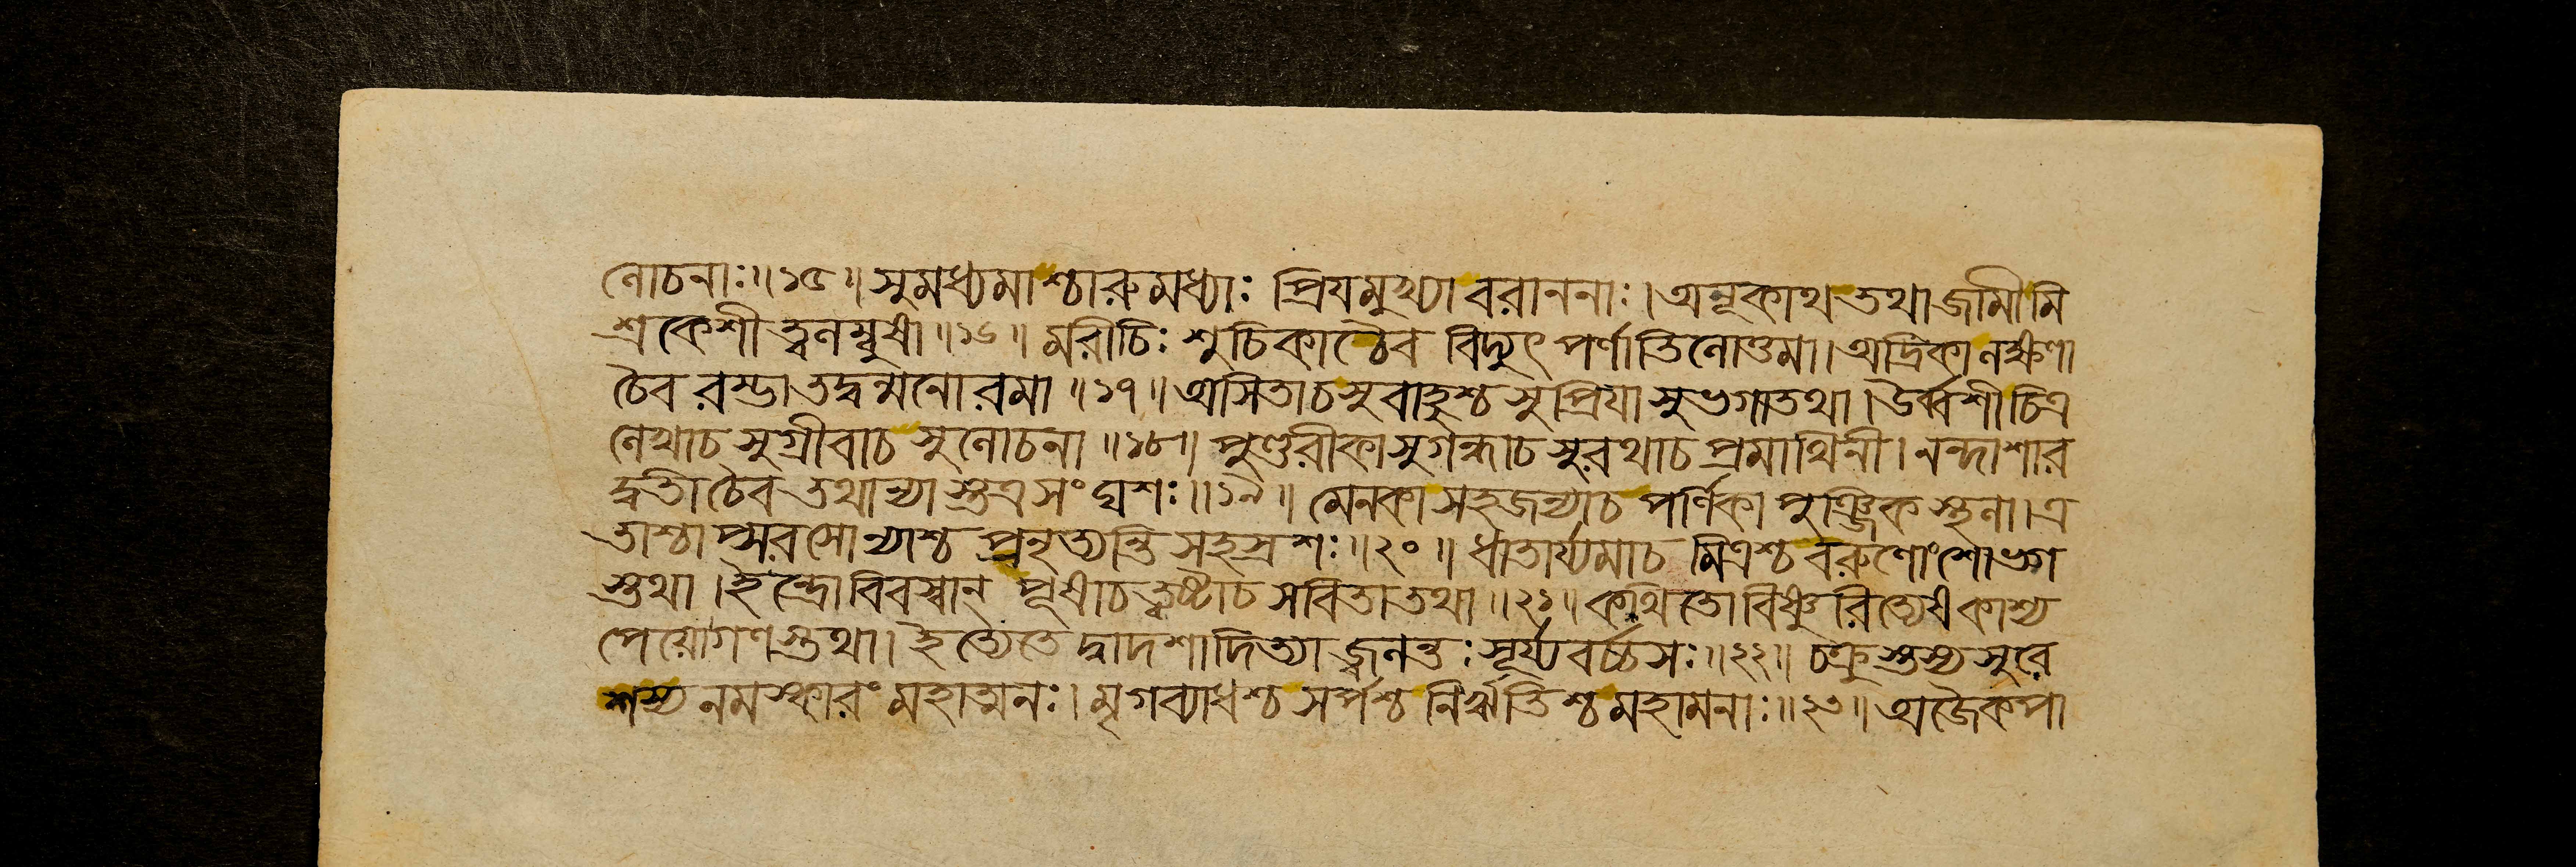 লোচনাঃ॥১৫॥সুমধ্যমাশ্চারুমধ্যাঃ প্রিয়মুখ্যা বরাননাঃ।অনূকাথ তথা জামী মি
শ্রকেশী ত্বলম্বুষা॥১৬॥মরীচিঃ শুচিকা চৈব বিদ্যুৎ পর্ণা তিলোত্তমা।অদ্রিকা লক্ষণা
চৈব রম্ভা তদ্বন্মনোরমা॥১৭॥অসিতাচ সুবাহুশ্চ সুপ্রিয়া সুভগা তথা।উর্ব্বশী চিত্র
লেখাচ সুগ্রীবাচ সুলোচনা॥১৮॥পুণ্ডরীকা সুগন্ধাচ সুরথাচ প্রমাথিনী।নন্দা শার
দ্বতী চৈব তথান্যাস্তুত্র সংঘশঃ॥১৯॥মেনকা সহজন্যাচ পর্ণিকা পুঞ্জিকস্থলা।এ
তাশ্চাপ্সরসোন্যাশ্চ প্রনৃত্যন্তি সহস্রশঃ॥২০॥ধাতার্য্যমাচ মিত্রশ্চ বরুণোংশো ভগ
স্তথা।ইন্দ্রো বিবস্বান্ পূষাচ ত্বষ্টাচ সবিতা তথা॥২১॥কথিতো বিষ্ণুরিত্যেষ কাশ্য
পেয়োগণস্তথা।ইত্যেতে দ্বাদশাদিত্যা জ্বলন্তঃ সূর্য্যবর্চ্চসঃ॥২২॥চক্রুস্তস্য সুরে
শস্য নমস্কারং মহাত্মনঃ।মৃগব্যাধশ্চ সর্পশ্চ নির্ঋতিশ্চ মহামনাঃ॥২৩॥অজৈকপা